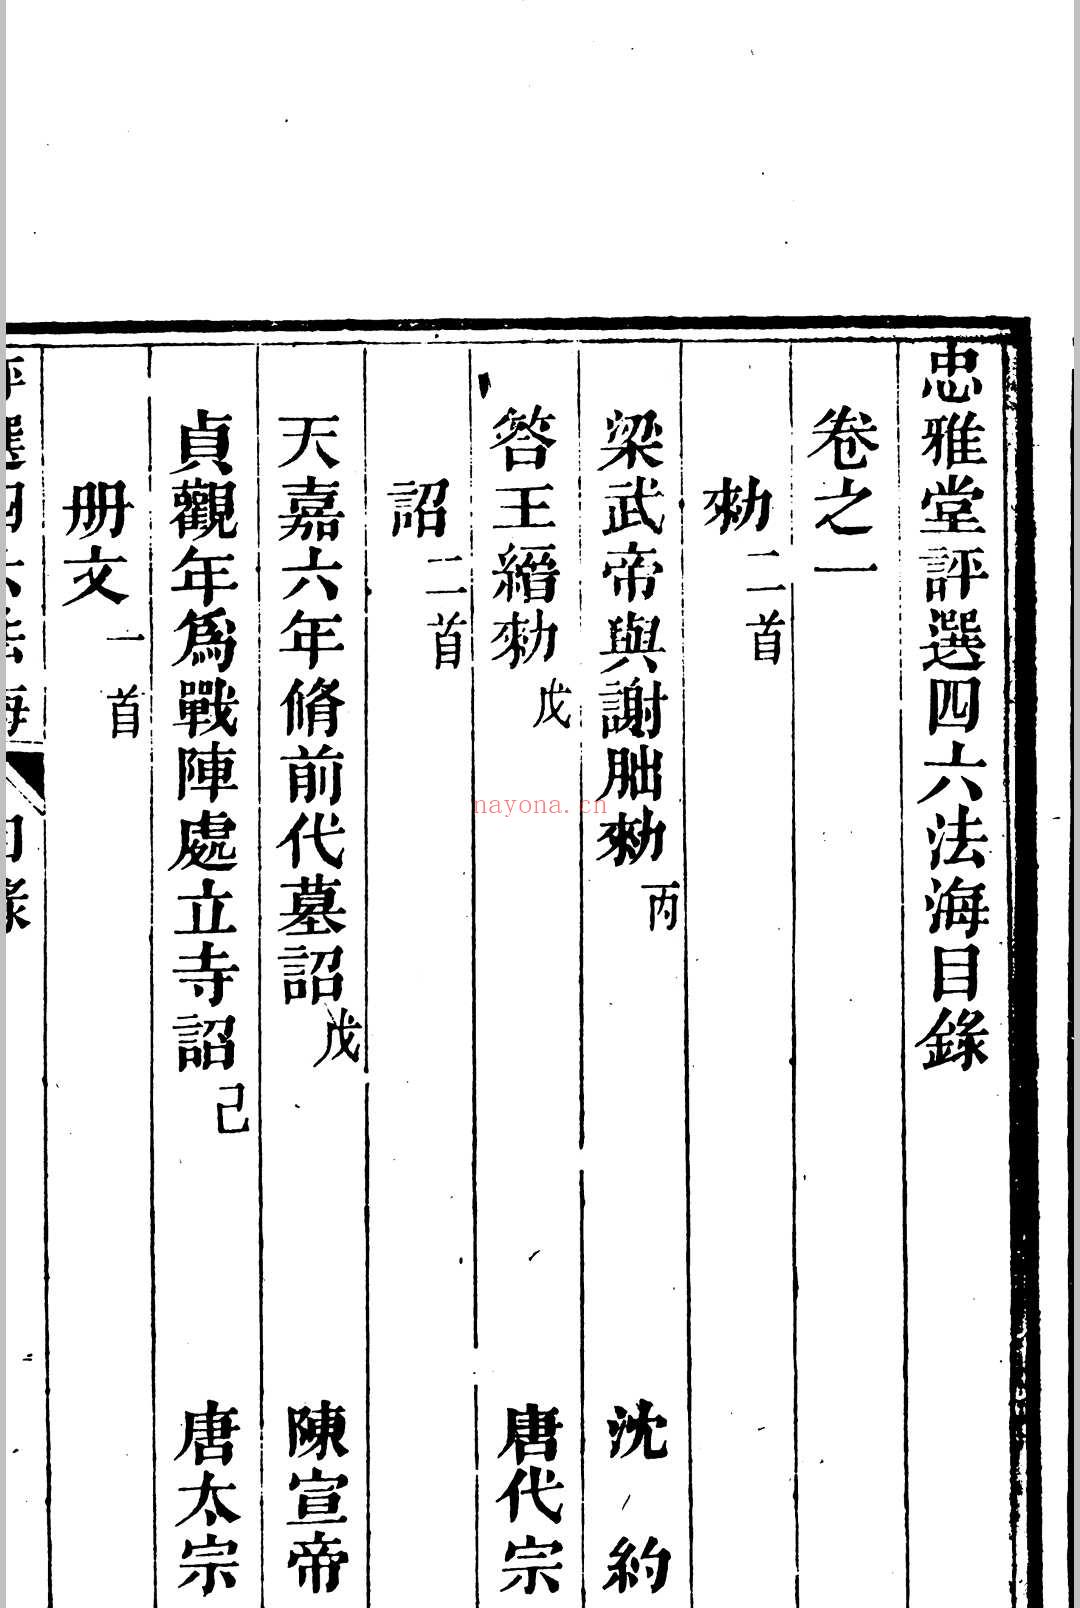 忠雅堂評選四六法海目錄
卷之一
勑二首
梁武帝與謝朏勑丙 沈約
答王縉勑戊 唐代宗
詔二首
天嘉六年脩前代墓詔戊 陳宣帝
貞觀年爲戰陣處立寺詔己 唐太宗
册文一首
nayona.cn